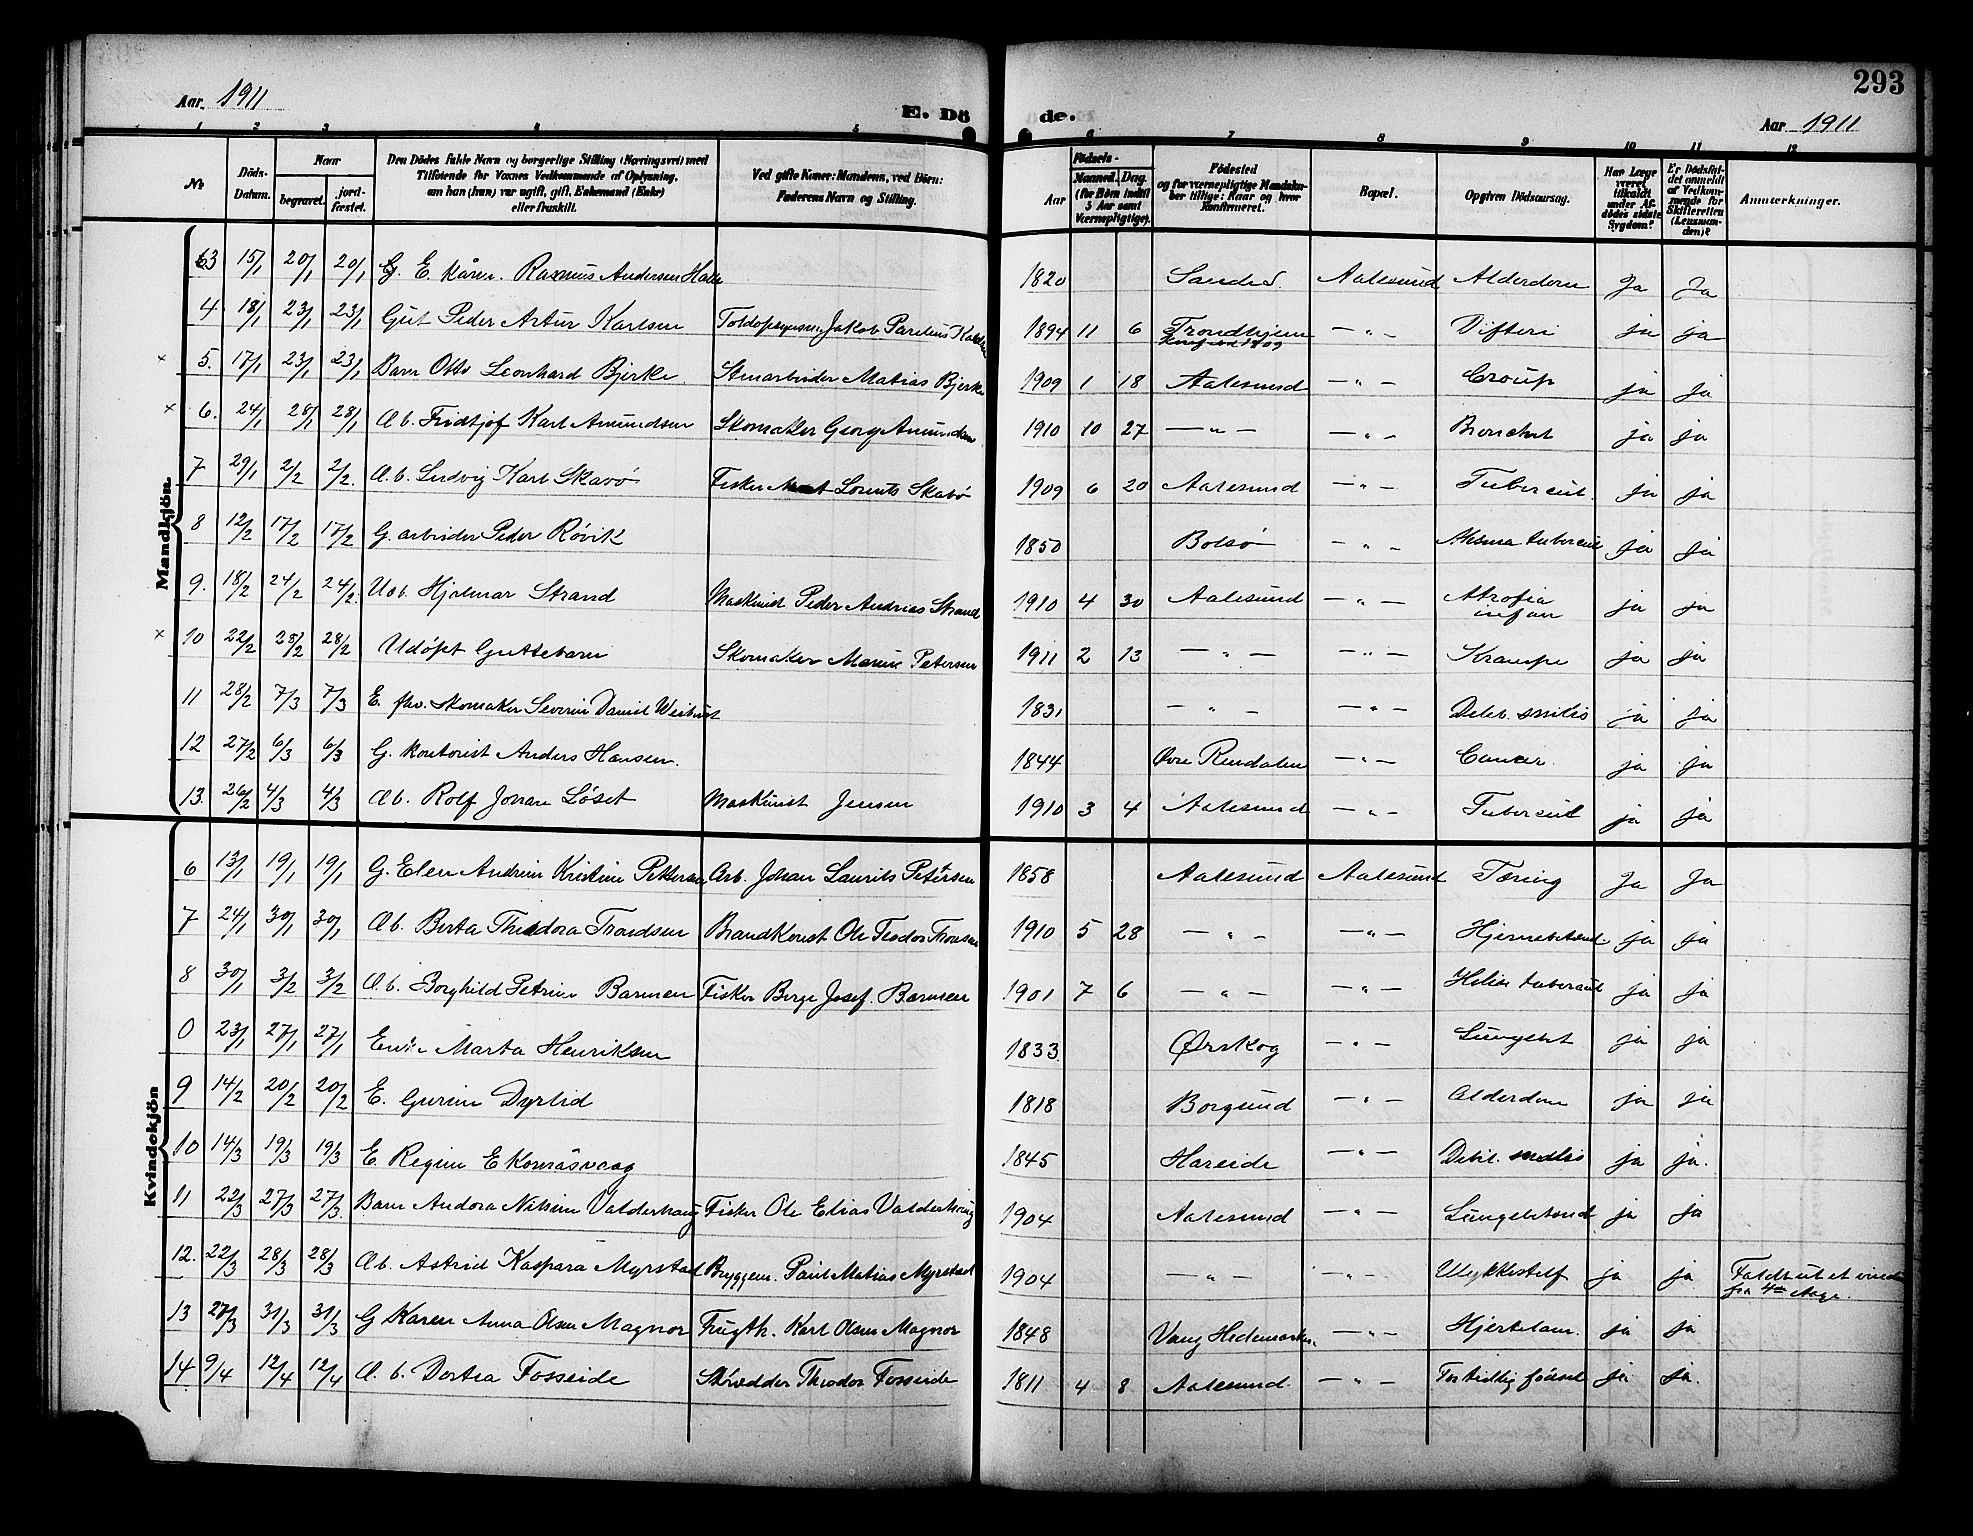 293
Aar 1911
E. Dö de.
Aar 1911
1 2 3 4 5 6 7 8 9 10 11 12
No
Döds-Datum.
Naar
begravet.
jord-fæstet.
Den Dödes fulde Navn og borgerlige Stilling (Næringsvei) med
Tilföiende for Voxnes Vedkommende af Oplysning,
om han (hun) var ugift, gift, Enkemand (Enke)
eller fraskilt.
Ved gifte Koner: Mandens, ved Börn:
Faderens Navn og Stilling.
Födsels-
Aar
Maaned. Dag.
(for Börn indtil 5 Aar samt Værnepligtige).
Födested
og for værnepligtige Mandska-
ber tillige: Naar og hvor
Konfirmeret.
Bopæl.
Opgiven Dödsaarsag.
Har Læge været tilkaldt under Af-dödes sidste Sygdom?
Er Dödsfal-det anmeldt af Vedkom-mende for Skifteretten (Lensman-den)?
Anmærkninger.
Mandkjön.
3 15/1 20/1 20/1 E. Rasmus Andersen 1820 Aalesund Alderdom Ja Ja
4 18/1 23/1 23/1 Gut Peder Artur Karlsen Jakob Parelius 1894 11 6 Trondhjem — " — Difteri ja ja
× 5. 17/1 23/1 23/1 Barn Otto Leonhard Bjerke Stenarbeider Matias Bjerke 1909 1 18 Aalesund — " — Croup ja ja
× 6. 24/1 28/1 28/1 Æb. Fridtjof Karl Amundsen Skomaker Georg Amundsen 1910 10 27 — " — — " — Bronchit ja ja
7 29/1 2/2 2/2. Æ.b. Ludvig Karl Skavø Fisker Lorents Skavø 1909 6 20 Aalesund — " — Tubercul. ja ja
8 12/2 17/2 17/2 G. arbeider Peder Róvik 1850 Bolsø — " — tubercul ja ja
9. 18/2 24/2 24/2. Uæb. Hjalmar Strand Maskinist Peder Andreas Strand 1910 4 30 Aalesund — " — Atrofia infan ja ja
× 10 22/2 28/2 28/2 Udöpt Guttebarn Skomaker Marius Petersen 1911 2 13 — " — — " — Krampe ja ja
11 28/2 7/3 7/3 E. fhv. skomaker Severin Daniel 1831 — " — — " — Debil. senilis ja ja
12 27/2 6/3 6/3 G. kontorist Anders Hansen. 1844 Øvre Rendalen — " — Cancer. ja ja
13. 26/2 4/3 4/3 Æb. Rolf Johan Löset Maskinist Jensen 1910 3 4 Aalesund — " — Tubercul ja ja
Kvindekjön
6 13/1 19/1 19/1 G. Elen Andrine Kristine Pettersen Arb. Johan Laurits Petersen 1858 Aalesund Aalesund Tæring Ja Ja
7 24/1 30/1 30/1 Æb. Berta Theodora Trondsen Ole Teodor 1910 5 28 — " — — " — ja ja
8 30/1 3/2 3/2 Æ.b. Borghild Petrine Barmen Fisker Berge Josef. Barmen 1901 7 6 — " — — " — tubercul ja ja
0 23/1 27/1 27/1 Enke Marta Henriksen 1833 Ørskog — " — Lungebet ja ja
9 14/2 20/2 20/2 E. Gurine Dyrlid 1818 Borgund — " — Alderdom ja ja
10 14/3 19/3 19/3 E. Regine E 1845 Hareide — " — Debil. senilis ja ja.
11 22/3 27/3 27/3. Barn Andora Nilsine Valderhaug Fisker Ole Elias Valderhaug 1904 Aalesund — " — ja ja
12. 22/3 28/3 28/3 Æb. Astrid Kaspara Myrstad Bryggem. Paul Matias Myrstad 1904 — " — — " — ja ja Faldt ut et vindu
fra 4de etage.
13 27/3 31/3 31/3 G Karen Anna Olsen Magnor Frugth. Karl Olsen Magnor 1848 Vang Hedemarken — " — Hjertelam. ja ja
14. 9/4 12/4 12/4 Æ. b. Dortea Fosseide Skrædder Theodor Fosseide 1811 4 8 Aalesund. — " — For tidlig födsel ja ja.